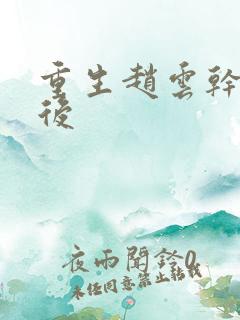 重生趙雲幹
後
夜雨聞鈴0
未任同意禁止轉載